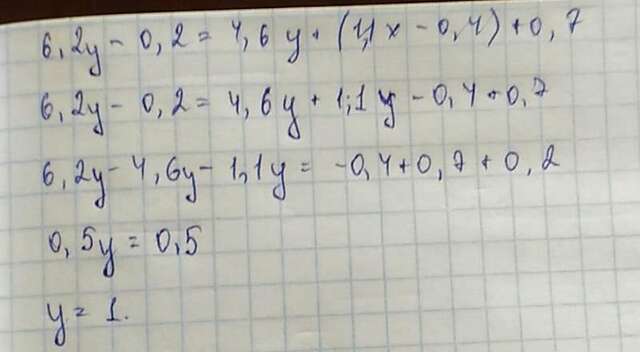 6,2y - 0,2 = 4,6y + (1,1x - 0,4) + 0,7
6,2y - 0,2 = 4,6y + 1,1y - 0,4 + 0,7
6,2y - 4,6y - 1,1y = -0,4 + 0,7 + 0,2
0,5y = 0,5
y = 1.